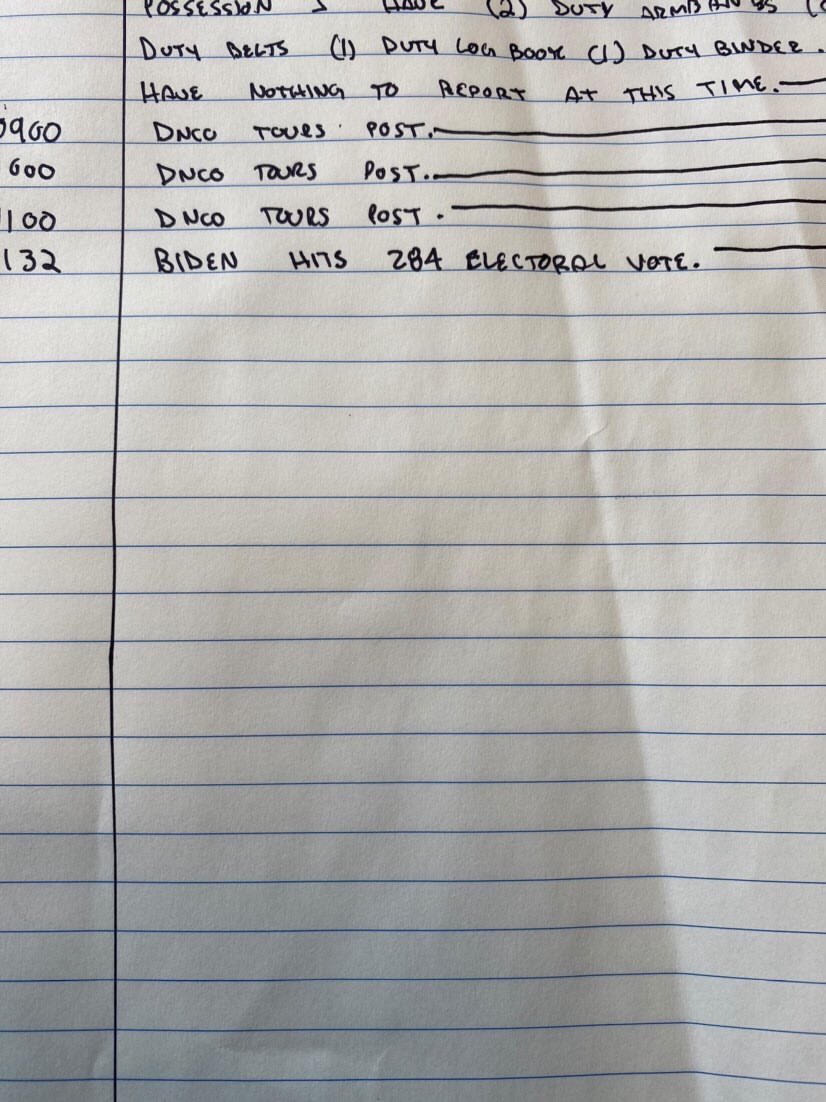 POSSESSION I HAVE (2) DUTY ARMBANDS
DUTY BELTS (1) DUTY LOG BOOK (1) DUTY BINDER.
HAVE NOTHING TO REPORT AT THIS TIME.
0900 DNCO TOURS POST.
600 DNCO TOURS POST.
1100 DNCO TOURS POST.
132 BIDEN HITS 284 ELECTORAL VOTE.